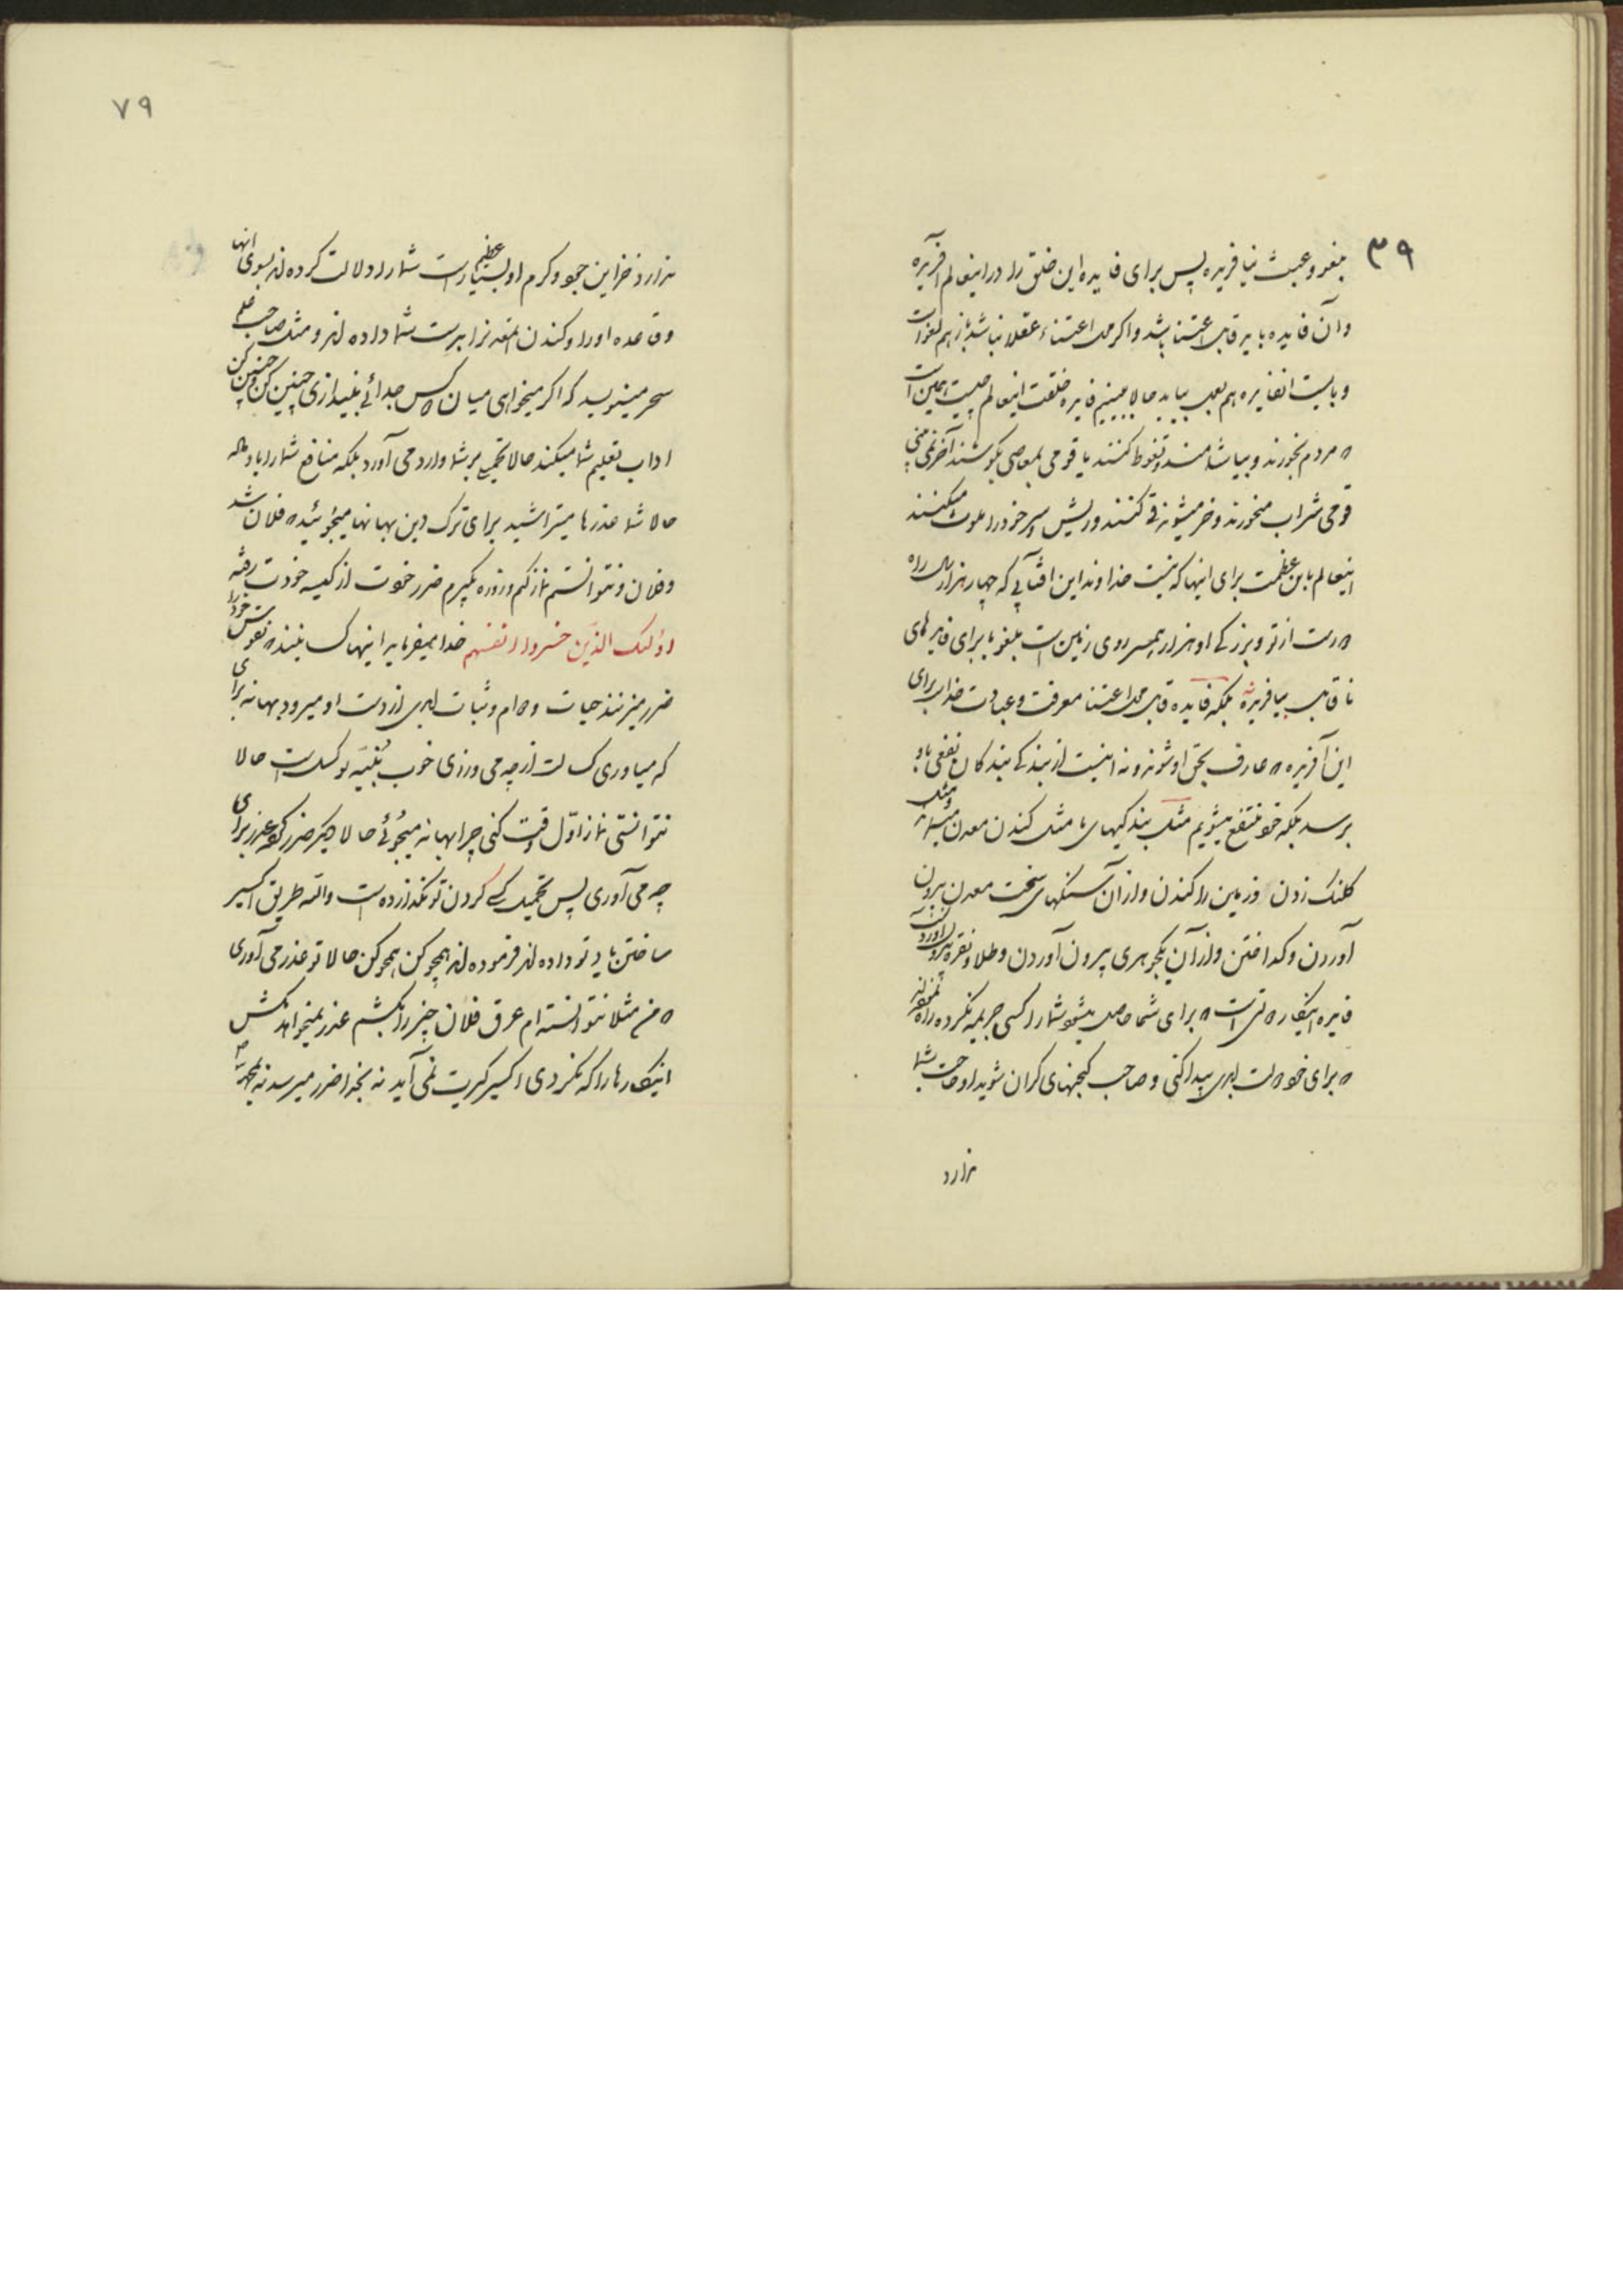 ۳۹
بلغو و عبث نیافریده پس برای فایده این خلق را در اینعالم آفریده
و آن فایده باید قابل اعتنا باشد و اگر محل اعتناء عقلا نباشد باز هم لغو است
و بایست انفایده هم بعمل بیاید حالا ببینیم فایده خلقت اینعالم چیست همین است
که مردم بخورند و بیاشامند و تغوط کنند یا قومی بمعاصی بکوشند آخر نمی بینی
قومی شراب میخورند و خر میشوند قی کنند و ریش و سر خود را ملوث میکنند
اینعالم باین عظمت برای اینها که نیست خداوند این افتابی که چهار هزار سال راه
دور است از تو و بزرگی او هزار همسر روی زمین است بلغو یا برای فایدهای
ناقابل بیافریده بلکه فایده قابل محل اعتنا معرفت و عبادت خدا برای
این آفریده که عارف بحق او شوند و نه اینست از بندگی بندگان نفعی باو
برسد بلکه خود منتفع میشویم مثل بندگیهای ما مثل کندن معدن میماند
کلنک زدن و زمین را کندن و از آن سنگهای سخت معدن بیرون
آوردن و گداختن و از آن یکجوهری بیرون آوردن و طلا و نقره بیرون آوردن
فایده اینکار که تراست که برای شما حاصل میشود شما را کسی جریمه نکرده
که برای خود دولت ابدی پیدا کنی و صاحب گنجهای گران شوید او حاجت بشما
ندارد
۷۹
ندارد خزاین جود و کرم او بسیار عظیم است شما را دلالت کرده اند بسوی انها
و قاعده او را و کندن بشما داده اند و مثل صاحب علم
سحر مینویسد که اگر میخواهی میان دو کس جدائی بیندازی چنین کن و چنین کن
اداب تعلیم شما میکند حالا تحمیلی بر شما وارد می آورد بلکه منافع شما را یاد داده
حالا شما عذرها میتراشید برای ترک دین بهانها میجوئید که فلان شد
و فلان و نتوانستم نماز کنم و روزه بگیرم ضرر خودت از کیسه خودت رفته
اولئک الذین خسروا انفسهم خدا میفرماید اینها کسانیند که نفوس خود را
ضرر میزنند حیات و دوام و ثبات ابدی از دست او میرود بهانه برای
که میاوری کسالت از چه می ورزی خوب بنیه تو کسل است حالا
نتوانستی نماز اول وقت کنی چرا بهانه میجوئی حالا دیگر ضرر کرده عذر برای
چه می آوری پس تحمیل کسی گردن تو نگذارده است والله طریق اکسیر
ساختن یاد تو داده اند فرموده اند همچو کن همچو کن حالا تو عذر می آوری
که من مثلا نتوانسته ام عرق فلان چیز را بکشم عذر نمیخواهد نکش
اینکارها را که نکردی اکسیر کبریت نمی آید نه بخدا ضرر میرسد نه بمحمد ص